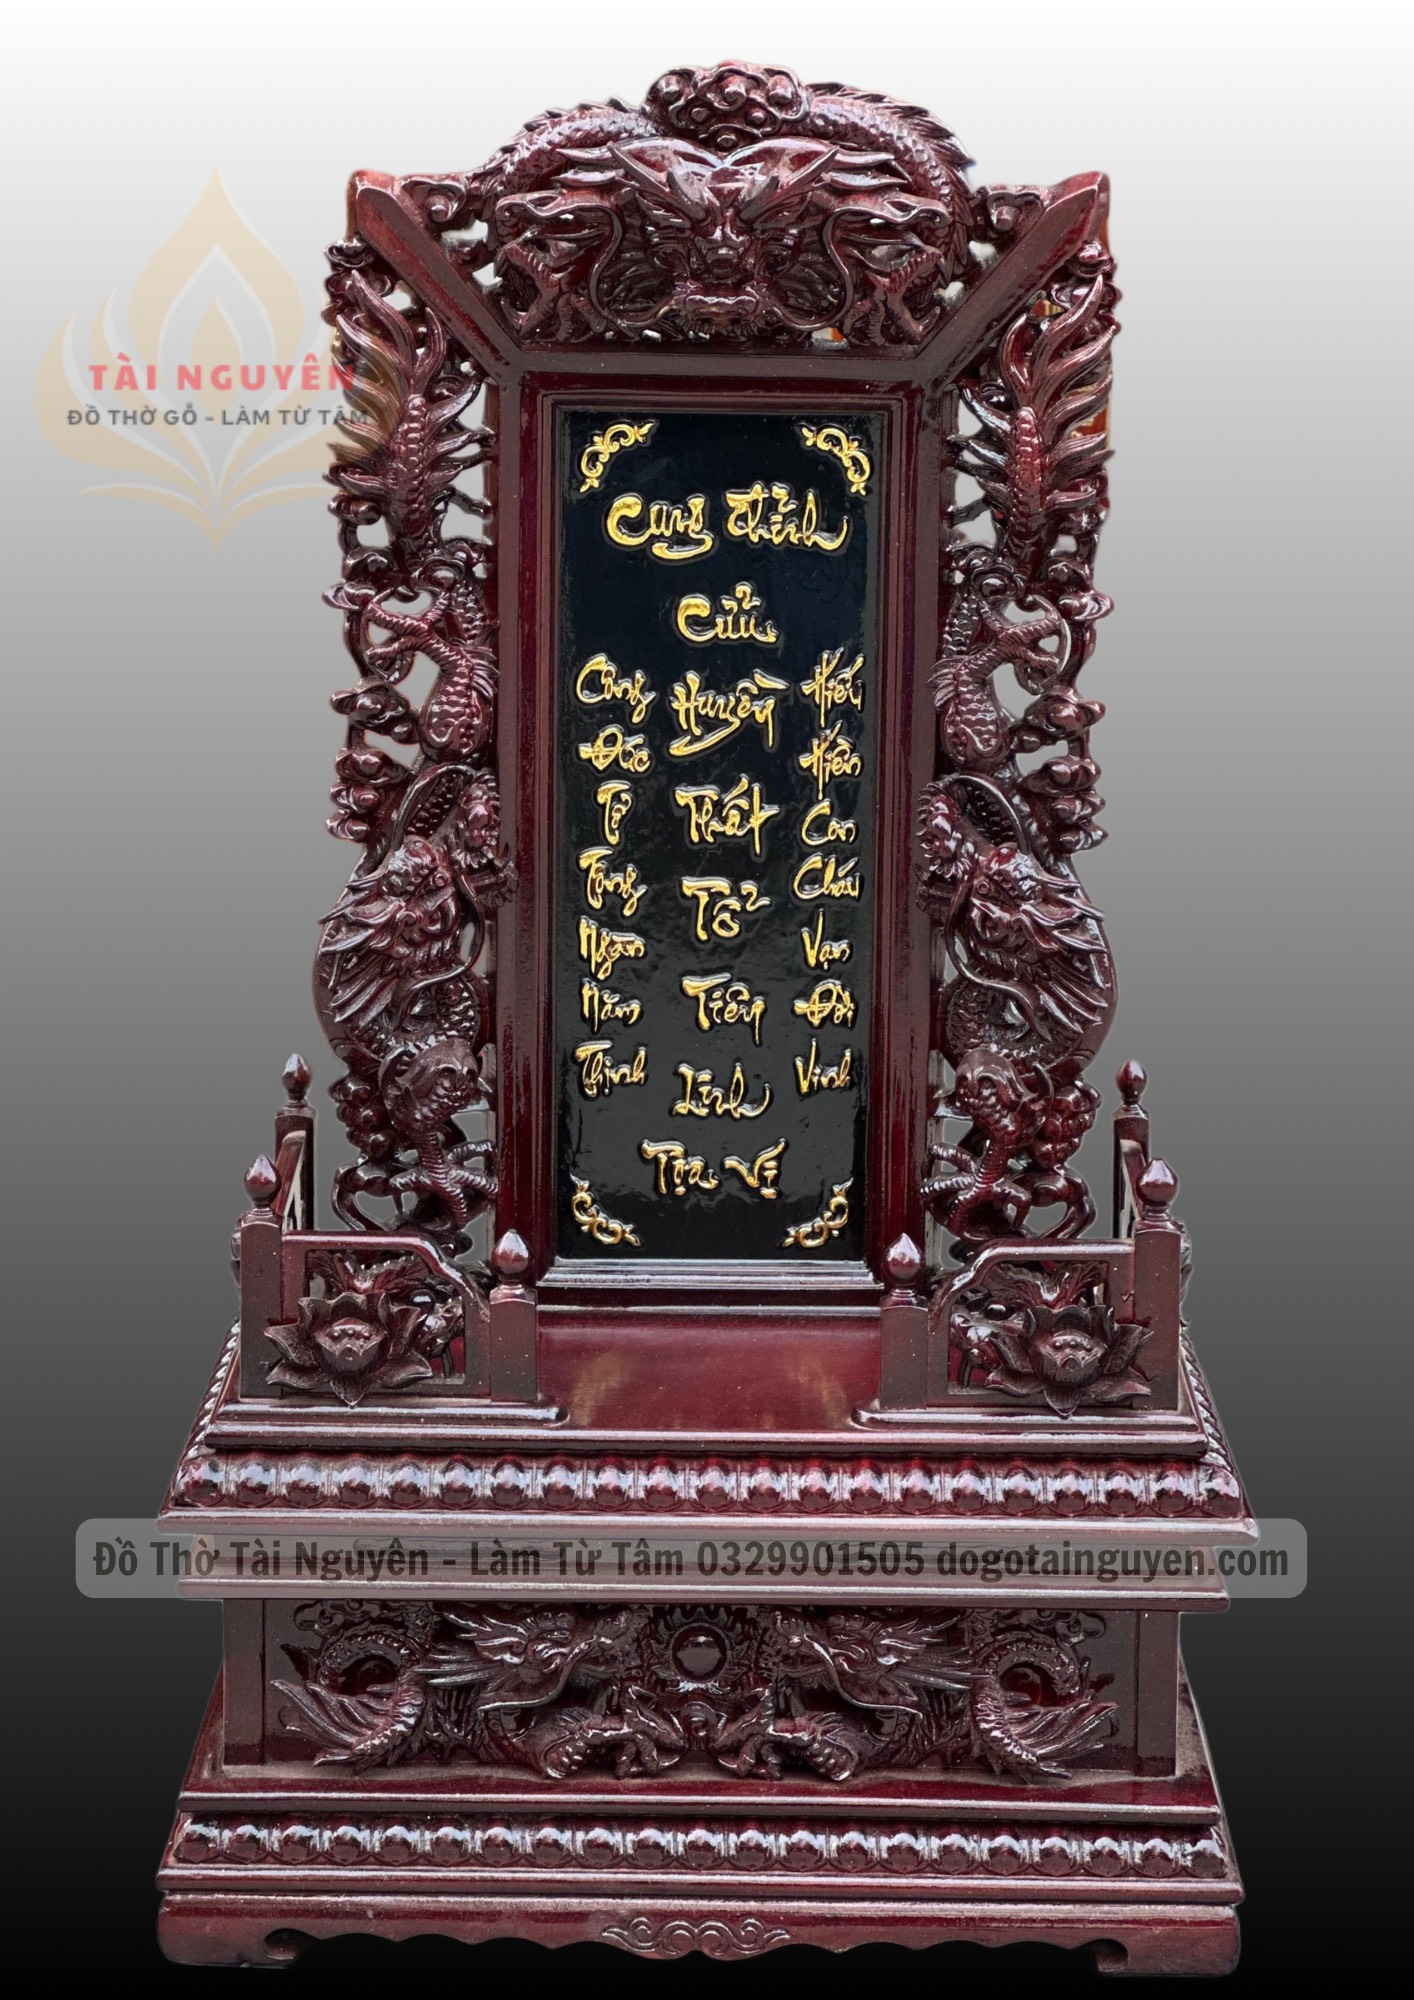 TÀI NGUYÊN
ĐỒ THỜ GỖ - LÀM TỪ TÂM
Cung Thỉnh
Cửu
Huyền
Thất
Tổ
Tiên
Linh
Tọa Vị
Hiếu
Hiền
Con
Cháu
Vạn
Đời
Vinh
Công
Đức
Tổ
Tông
Ngàn
Năm
Thịnh
Đồ Thờ Tài Nguyên - Làm Từ Tâm 0329901505 dogotainguyen.com